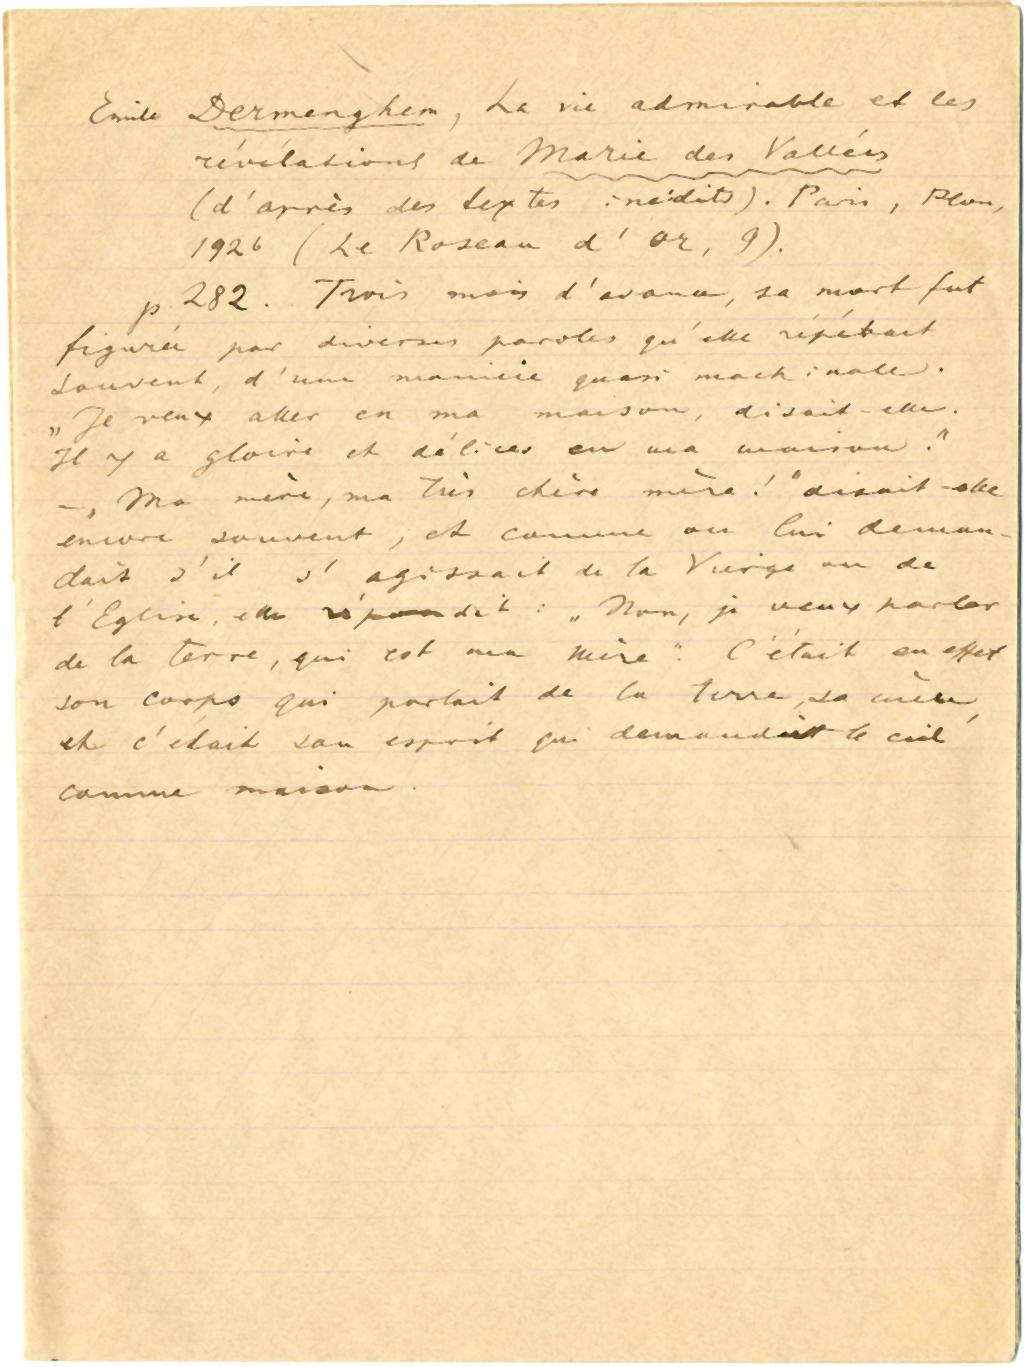 Emile Dermenghem, La vie admirable et les
révélations de Marie des Vallées
(d'après des textes inédits). Paris, Plon,
1926 (Le Roseau d'or, 9).
p 282. Trois mois d'avance, sa mort fut
figurée par diverses paroles qu'elle répétait
souvent, d'une manière quasi machinale.
„Je veux aller en ma maison, disait-elle.
Il y a gloire et délices en ma maison."
–„Ma mère, ma très chère mère!" disait-elle
encore souvent, et comme on lui deman-
dait s'il s'agissait de la Vierge ou de
l'Eglise, elle répondit: „Non, je veux parler
de la terre, qui est ma mère". C'était en effet
son corps qui parlait de la terre, sa mère,
et c'était son esprit qui demandait le ciel
comme maison.